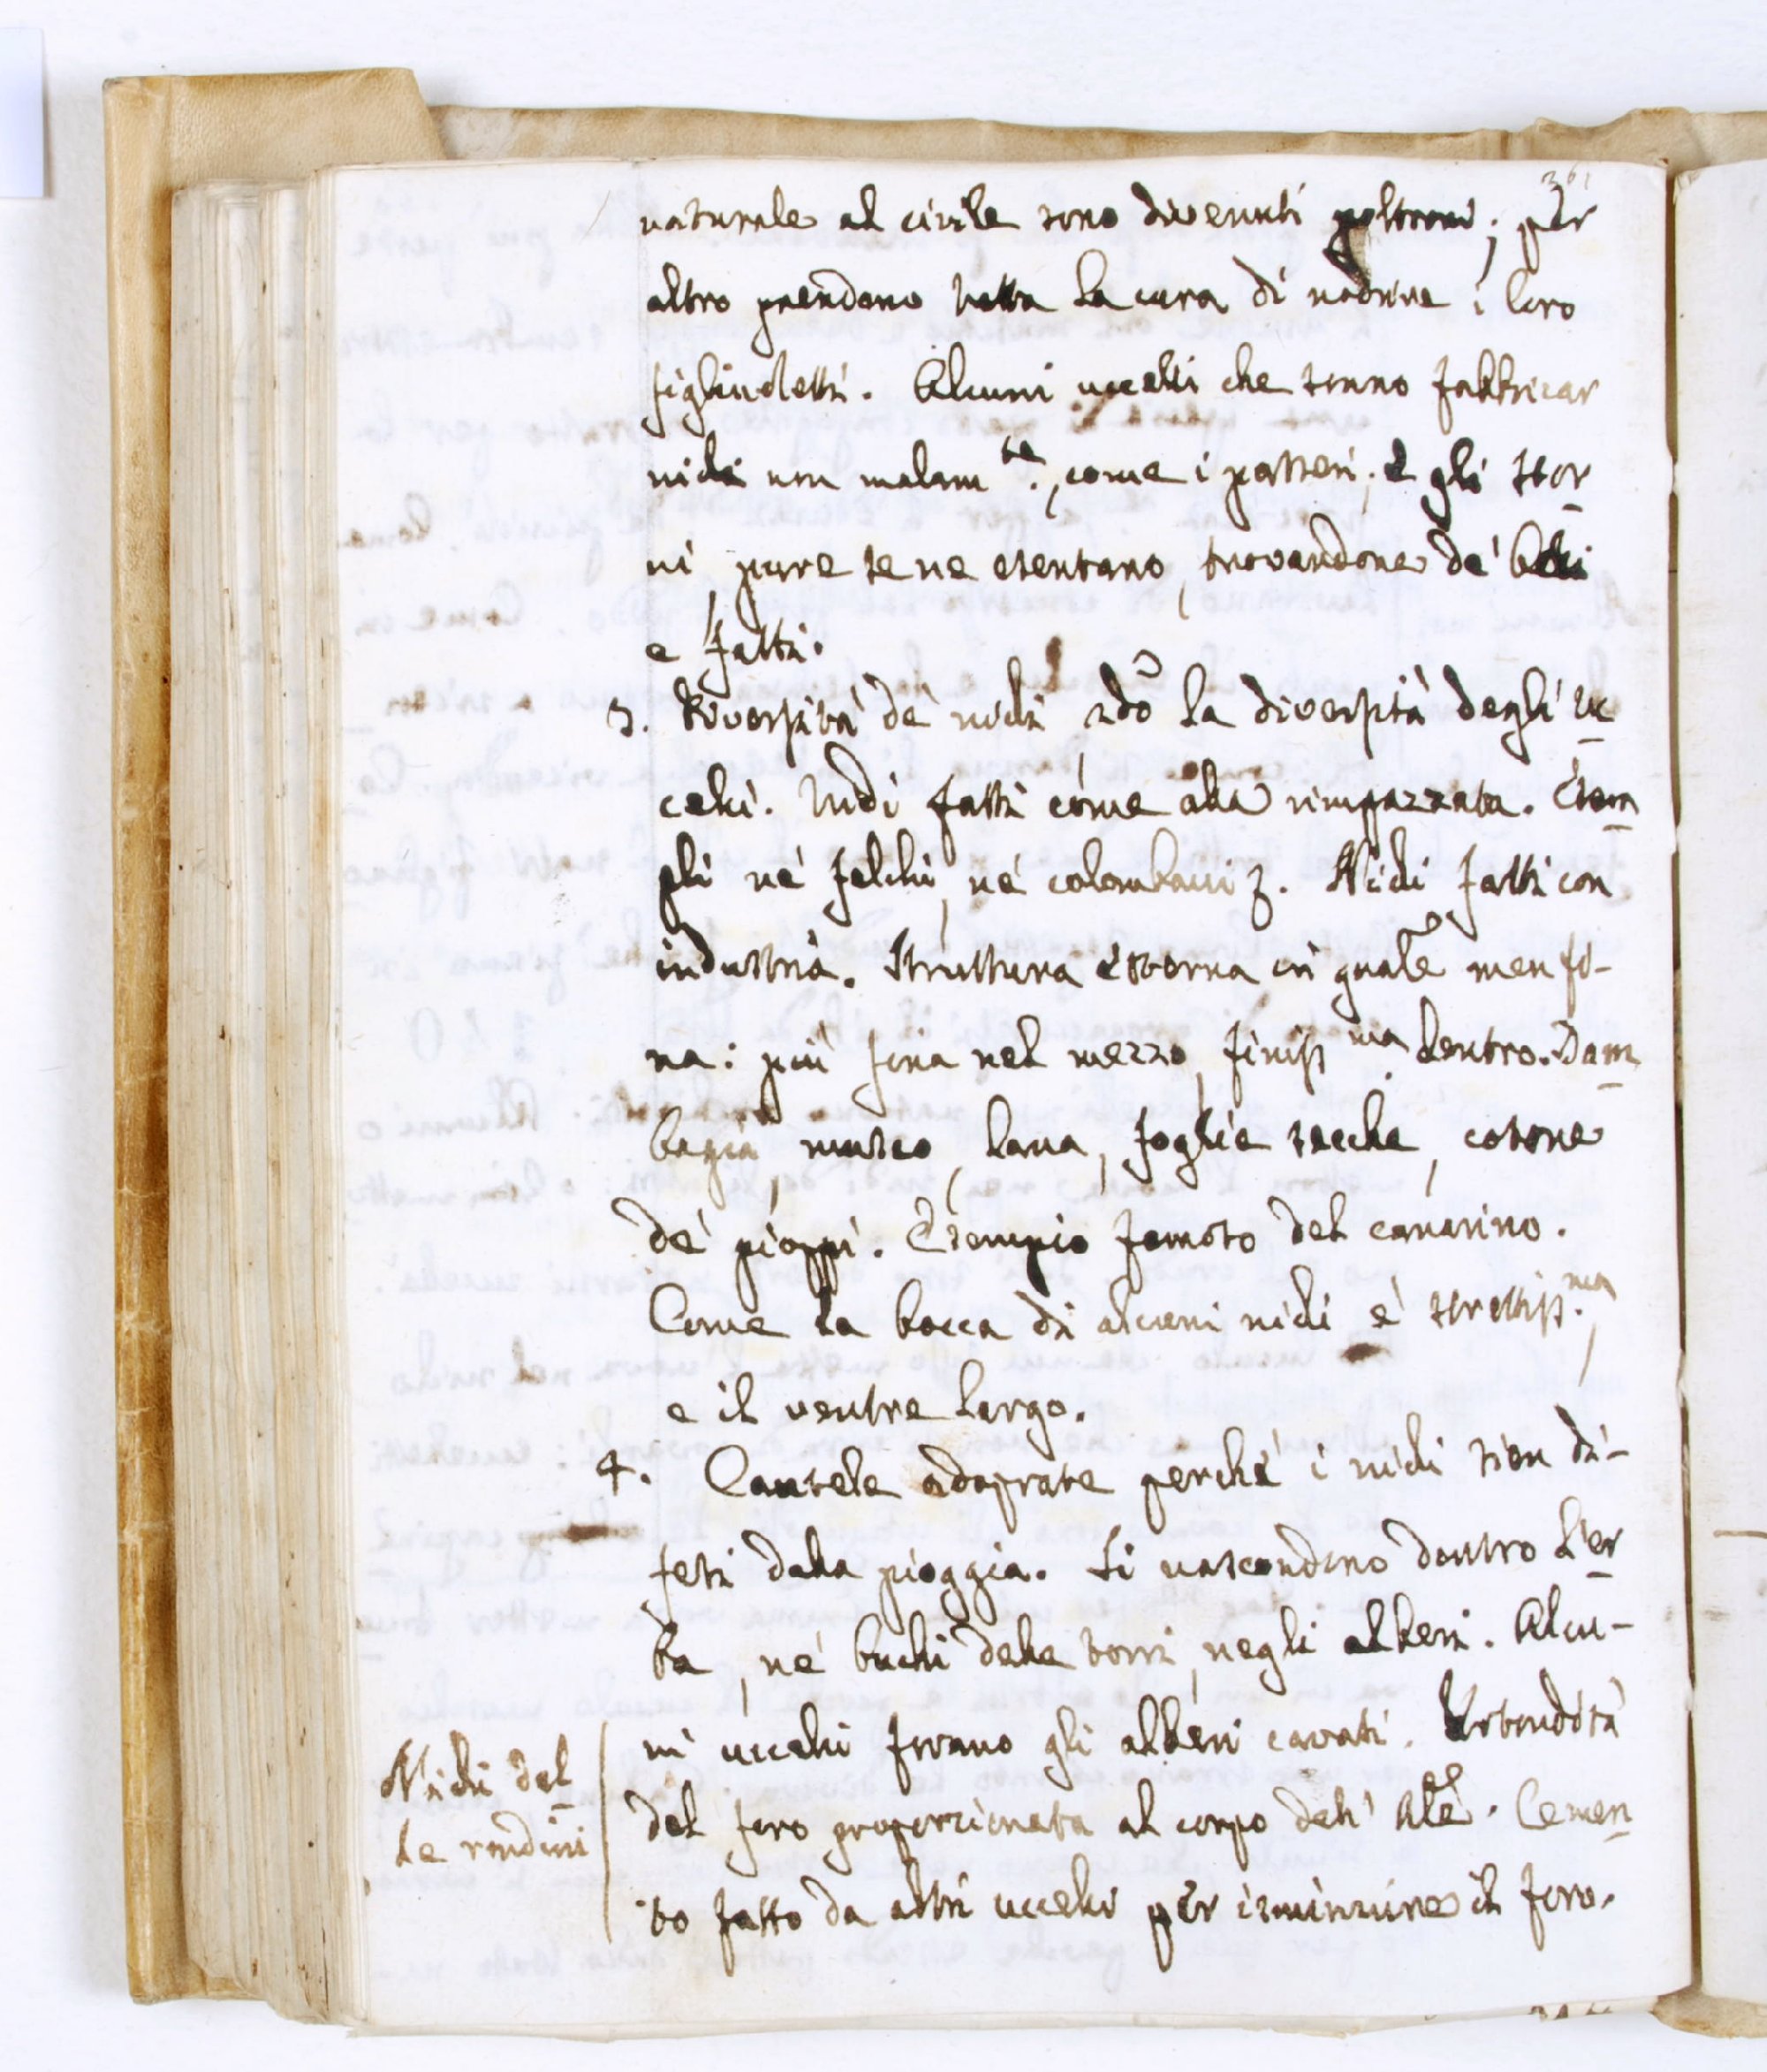 361
naturale al civile sono divenuti poltroni; per
altro prendono tutta la cura di nodrire i loro
figliuoletti. Alcuni uccelli che sanno fabbricar
nidi non malamte., come i passeri, e gli stor
ni, pure se ne esentano, trovandone de' belli
e fatti.
3. Diversità de' nidi 2dō la diversità degli uc
celli. Nidi fatti come alla rimpazzata. Esem
pli ne' falchi, ne' colombacci &. Nidi fatti con
industria. Struttura esterna in quale men fi-
na: più fina nel mezzo, finissma. dentro. Bam
bagia, musco, lana, foglie secche, cotone
de' pioppi. Esempio famoso del canarino.
Come la bocca di alcuni nidi è strettissma.,
e il ventre largo.
4. Cautele adoprate perché i nidi sien di-
fesi dalla pioggia. Si nascondono dentro l'er
ba, ne' buchi delle torri, negli alberi. Alcu-
ni uccelli forano gli alberi cavati. Rotondità
del foro proporzionata al corpo dell' Ale. Cemen
to fatto da altri uccelli per isminuire il foro.
Nidi del
le rondini